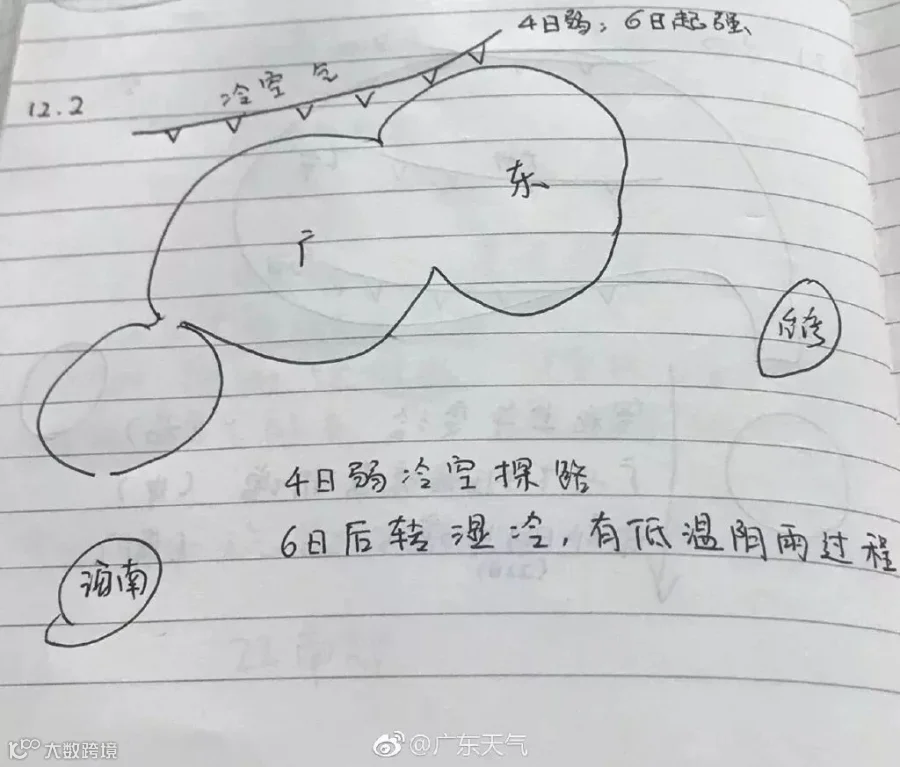 4日弱；6日起强
冷空气
12.2
东
广
台湾
4日弱冷空探路
6日后转湿冷，有低温阴雨过程
海南
大数跨境
@广东天气